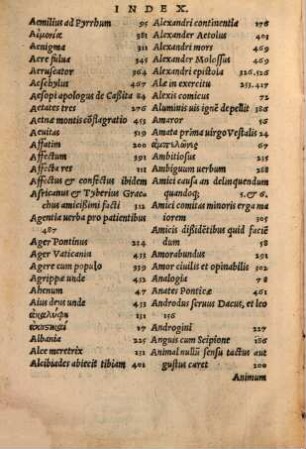 INDEX.
Aemilius ad Pyrrhum 95
Aemoniæ 391
Aenigma 311
Aere fulua 385
Aeruscator 363
Aeschylus 367
Aesopi apologus de Caßita 84
Aetates tres 276
Aetnæ montis cõflagratio 453
Aeuitas 311
Affatim 200
Affectum 391
Affecta res 111
Affectus & confectus ibidem
Africanus & Tyberius Grac
chus amicißimi facti 331
Agentia uerba pro patientibus
487
Ager Pontinus 274
Ager Vaticanus 453
Agere cum populo 339
Agrippæ unde 431
Ahenum 47
Aius deus unde 431
Albania 225
Alce meretrix 151
Alcibiades abiecit tibiam 401
Alexandri continentiæ 178
Alexander Aetolus 401
Alexandri mors 469
Alexander Molossus 469
Alexandri epistola 526.526
Ale in exercitu 451.453
Alexis comicus 72
Aluminis uis ignẽ depellit 386
Amaror 36
Ameta prima uirgo Vestalis 24
Ambitiosus 251
Ambiguum uerbum 268
Amici causa an delinquendum
quandoq; 5.&6.
Amici comitas minoris erga ma
iorem 305
Amicis dißidẽtibus quid faciẽ
dum 58
Amorabundus 291
Amor ciuilis et opinabilis 302
Analogia 78
Anates Ponticæ 461
Androdus seruus Dacus, et leo
156
Androgini 227
Anguis cum Scipione 166
Animal nullũ sensu tactus aut
gustus caret 200
Animum